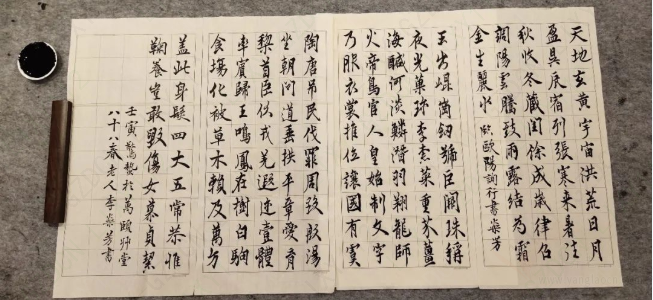 天地玄黃宇宙洪荒日月
盈昃辰宿列張寒來暑往
秋收冬藏閏餘成歲律呂
調陽雲騰致雨露結為霜
金生麗水 臨歐陽詢行書崇芳
玉出崐崗劍號巨闕珠稱
夜光菓珍李柰菜重芥薑
海醎河淡鱗潛羽翔龍師
火帝鳥官人皇始制文字
乃服衣裳推位讓國有虞
陶唐吊民伐罪周發殷湯
坐朝問道垂拱平章愛育
黎首臣伏戎羌遐迩壹體
率賓歸王鳴鳳在樹白駒
食場化被草木賴及萬方
蓋此身髮四大五常恭惟
鞠養豈敢毀傷女慕貞絜
壬寅驚蟄於萬頤堂
八十八春老人李崇芳書